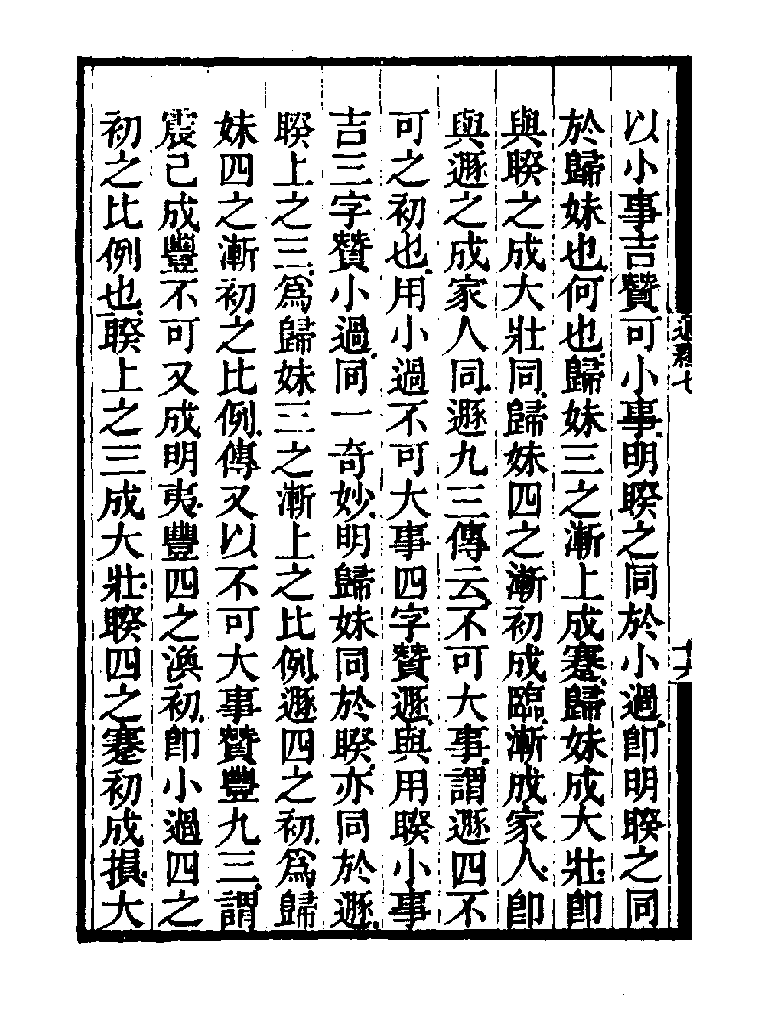 以小事吉贊可小事明睽之同於小過卽明睽之同
於歸妹也何也歸妹三之漸上成蹇歸妹成大壯卽
與睽之成大壯同歸妹四之漸初成臨漸成家人卽
與遯之成家人同遯九三傳云不可大事謂遯四不
可之初也用小過不可大事四字贊遯與用睽小事
吉三字贊小過同一奇妙明歸妹同於睽亦同於遯
睽上之三爲歸妹三之漸上之比例遯四之初爲歸
妹四之漸初之比例傳又以不可大事贊豐九三謂
震已成豐不可又成明夷豐四之渙初卽小過四之
初之比例也睽上之三成大壯睽四之蹇初成損大